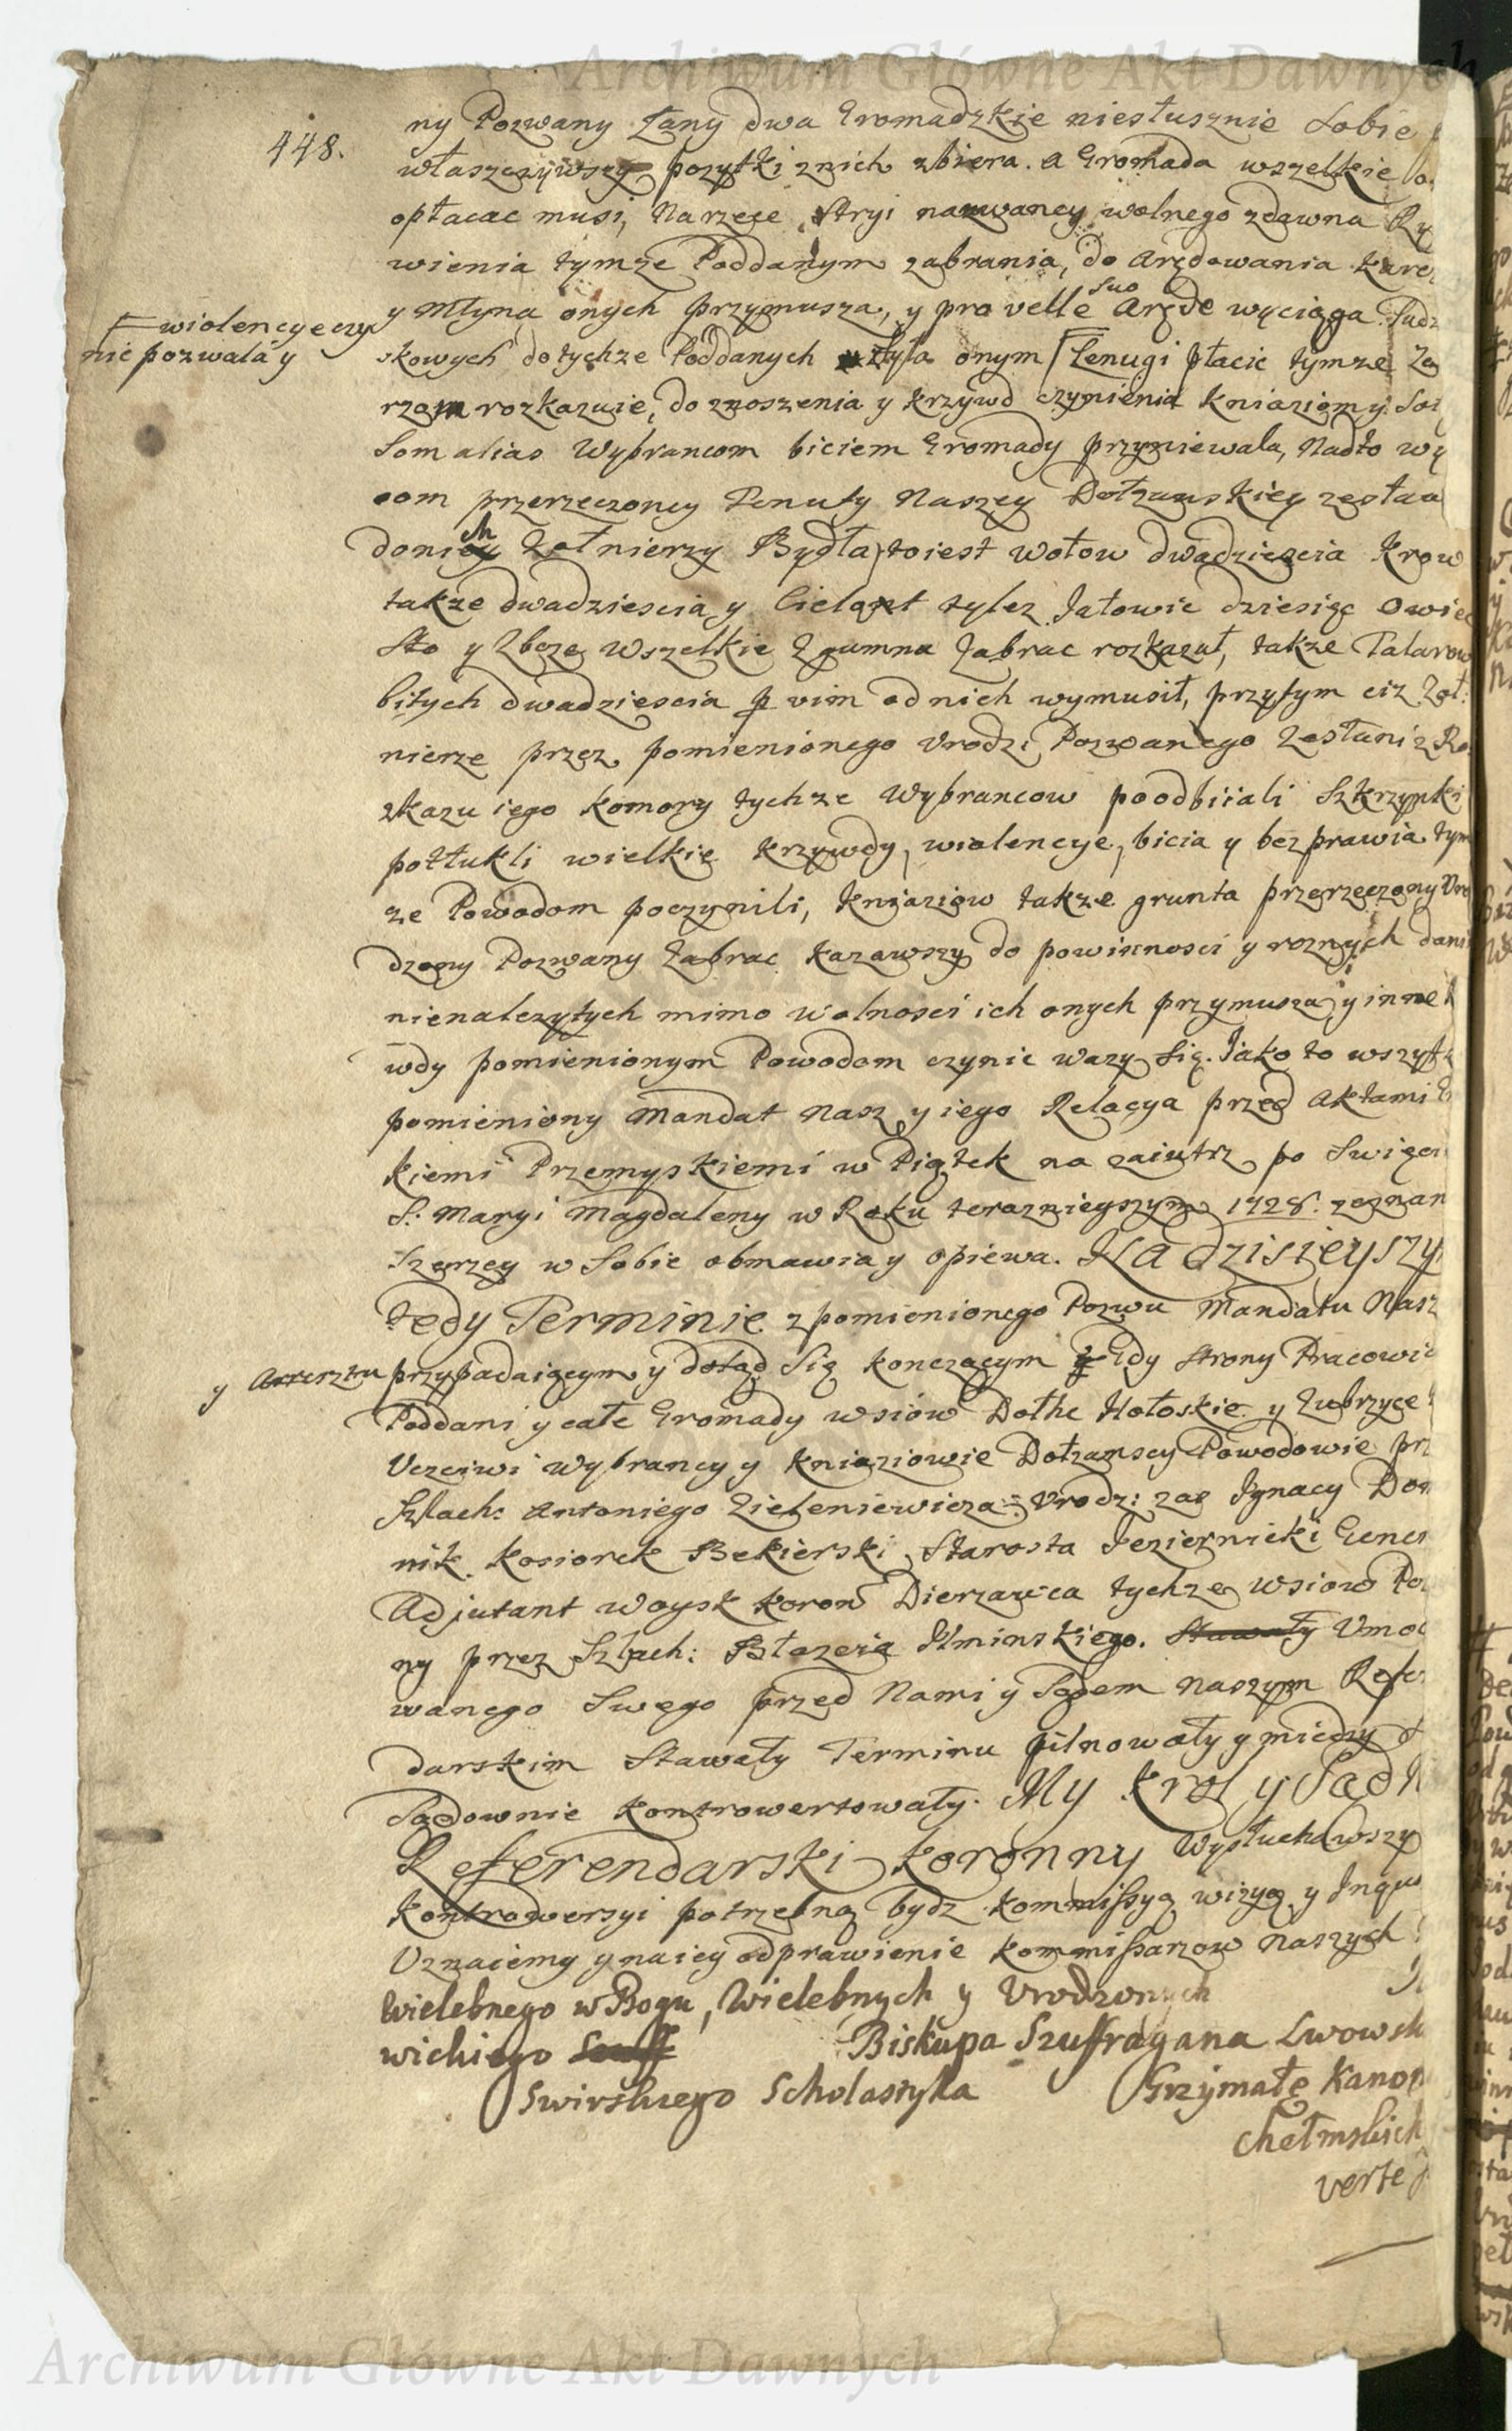 Archiwum Główne Akt Dawnych
448.
ny Pozwany Łany dwa Gromadzkie niesłusznie Sobie
właszczywszy pozytki znich zbiera. a Gromada wszelkie
opłacac musi, Na rzece Stryi nazwaney wolnego zdawna Ry
wienia tymze Poddanym zabrania, do Arędowania karc
y Młyna onych przymusza, y pro velle suo Arędę wyciąga
F wiolencye czy
nic pozwala y
skowych dotychze Poddanych zsyła onym płacic tymze Zo
rzom rozkazuie, do znoszenia y krzywd czynienia kniaziom y
Som alias Wybrancom biciem Gromady przyniewala, Nadto wy
com przerzeczoney Tenuty Naszey Dołzanskiey zesław
donich Zołnierzy Bydła, toiest wołow dwadziescia krow
takze dwadziescia y Cieląt tylez Jałowic dziesięc Owiec
Sto y Zboze wszelkie z gumna Zabrac rozkazał, takze Talarow
bitych dwadziescia p vim od nich wymusił, przytym ciz Zoł:
nierze przez pomienionego Urodz: Pozwanego Zesłani z Ro
zkazu iego komory tychze Wybrancow poodbiiali Szkrzynki
potłukli wielkie krzywdy, wiolencye, bicia y bezprawia tym
ze Powodom poczynili, kniaziow takze grunta przerzeczony Uro
dzony Pozwany Zabrac kazawszy do powinnosci y roznych dani
nienalezytych mimo wolnosci ich onych przymusza y inne
wdy pomienionym Powodom czynic wazy Się. Jako to wszyt
pomieniony Mandat Nasz y iego Relacya przed Aktami
kiemi Przemyskiemi w Piątek na zaiutrz po Swięci
S: Maryi Magdaleny w Roku terazнieyszym 1728. zeznan
Szerzey w Sobie obmawia y opiewa. Na dzisieyszy
tedy Terminie z pomienionego Pozwu Mandatu Nasz
y przypadaiącym y dotąd Się konczącym gdy Strony Pracowi
Poddani y całe Gromady wsiow Dołhe Hołoskie y Zubrzyce
Uczciwi Wybrancy y kniaziowie Dołzanscy Powodowie prz
Szlach: Antoniego Zieleniewicza: Urodz: zas Jgnacy Dom
nik kosiorek Bekierski Starosta Jeziernicki Gener
Adjutant Woysk koron Dierzawca tychze wsiow Po
ny przez Szlach: Błazeia Jłminskiego. Stawały Umoc
wanego Swego przed Nami y Sądem Naszym Refe
darskim Stawały Terminu pilnowały y miedzy
Sądownie kontrowertowały. My krol y Sąd
Referendarski koronny Wysłuchawszy
kontrowersyi potrzebną bydz kommissyą wizyą y Jnqu
Uznaiemy y na iey odprawienie kommissarzow Naszych
Wielebnego w Bogu, Wielebnych y Urodzonych
wickiego Biskupa Szuffragana Lwowsk
Swirskiego Scholastyka Grzymałę Kanon
Chełmskich
verte
Archiwum Główne Akt Dawnych